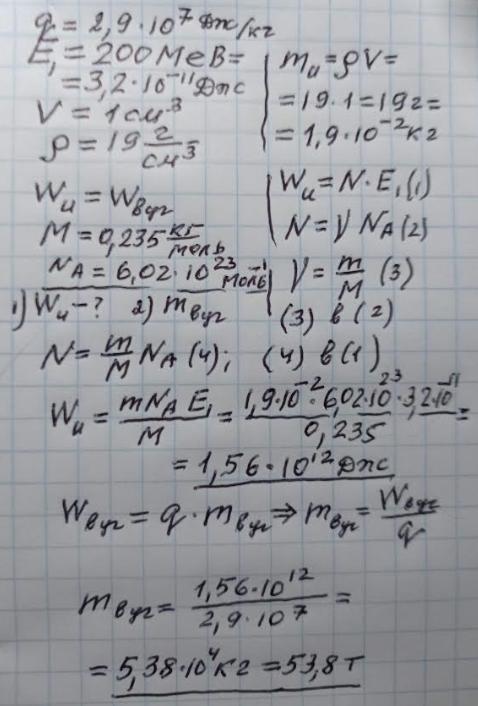 q = 2,9·10⁷ Дж/кг
E₁ = 200 МеВ =
= 3,2·10⁻¹¹ Дж
V = 1 см³
ρ = 19 г/см³
Wᵤ = W_вуг
M = 0,235 кг/моль
N_A = 6,02·10²³ моль⁻¹
1) Wᵤ - ? 2) m_вуг
mᵤ = ρV =
= 19·1 = 19г =
= 1,9·10⁻² кг
Wᵤ = N·E₁ (1)
N = ν N_A (2)
ν = m/M (3)
(3) в (2)
N = m/M N_A (4); (4) в (1)
Wᵤ = mN_A E₁/M = 1,9·10⁻²·6,02·10²³·3,2·10⁻¹¹/0,235 =
= 1,56·10¹² Дж
W_вуг = q·m_вуг ⇒ m_вуг = W_вуг/q
m_вуг = 1,56·10¹²/2,9·10⁷ =
= 5,38·10⁴ кг = 53,8 т